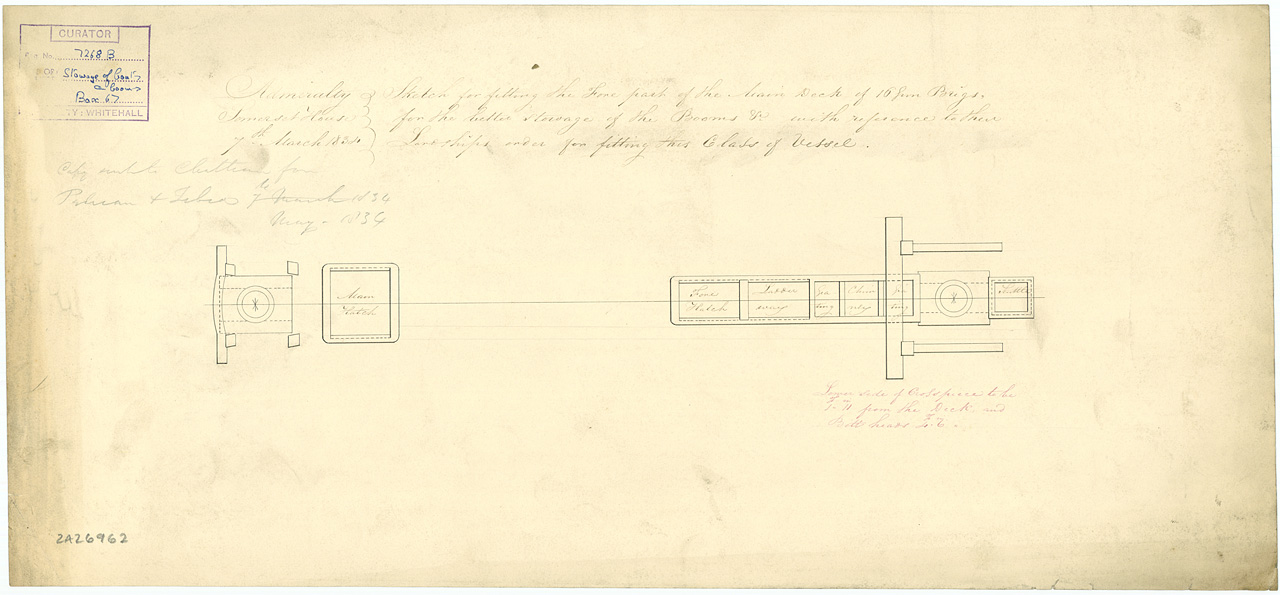 CURATOR
7268 B
Stowage of boats
& booms
Box 67
WHITEHALL
Admiralty } Sketch for fitting the Fore part of the Main Deck of 16 Gun Brigs,
Somerset House } for the better Stowage of the Booms &c with reference to their
7th March 1834 } Lordships order for fitting this Class of Vessel.
Copy sent to Chatham for
Pelican & 7th March 1834
May 1834
Main
Hatch
Fore
Hatch
Ladder
way
Gra
ting
Chim
ney
Gra
ting
Scuttle
Lower side of Cross piece to be
from the Deck and
Bitt heads
2A26962